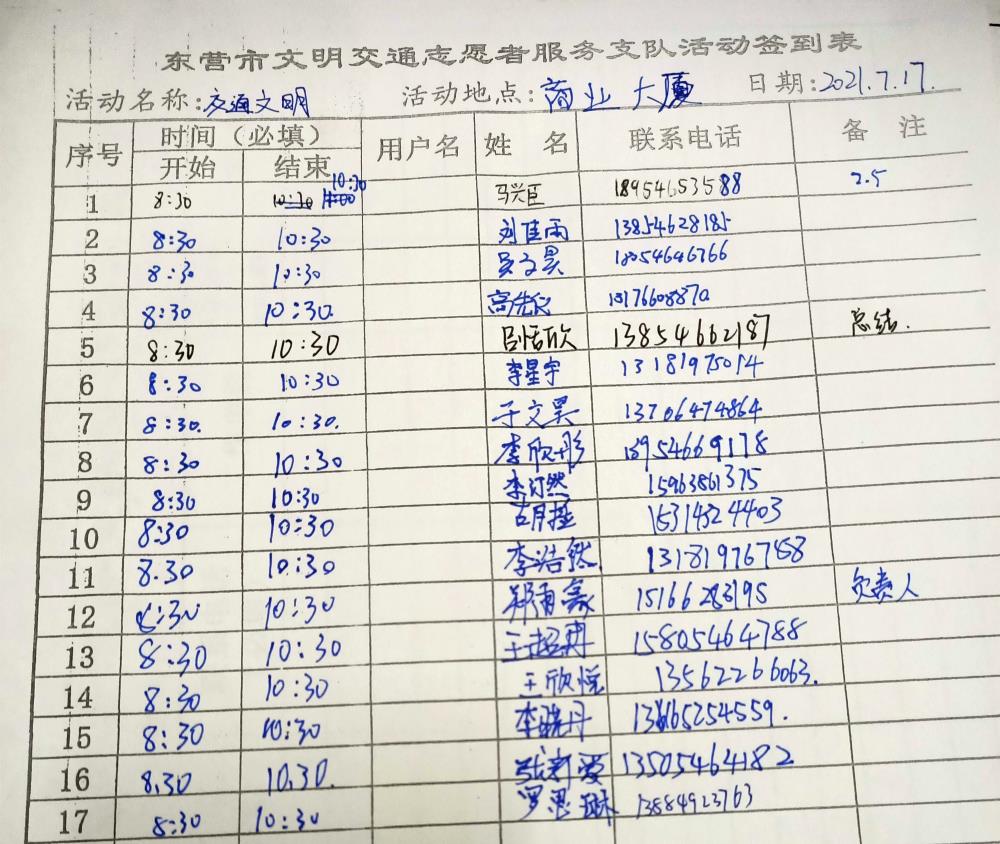 东营市文明交通志愿者服务支队活动签到表
活动名称:交通文明 活动地点:商业大厦 日期:2021.7.17.
序号 时间（必填） 用户名 姓 名 联系电话 备 注
开始 结束
1 8:30 10:30 马兴臣 18954653588 2.5
2 8:30 10:30 刘佳雨 13854628185
3 8:30 10:30 吴文昊 18054646766
4 8:30 10:30. 高先仪
5 8:30 10:30 13854662187 总结.
6 8:30 10:30 李星宇 13181975014
7 8:30. 10:30. 于文昊 13706474864
8 8:30 10:30 李欣彤 18954669178
9 8:30 10:30 15963861375
10 8:30 10:30 15314324403
11 8.30 10:30 李浩然 13181976788
12 8:30 10:30 郑雨豪 15166283195 负责人
13 8:30 10:30 15805464788
14 8:30 10:30 王欣悦 13562266063.
15 8:30 10:30 李晓丹
16 8.30 10.30. 张新爱 13505464182
17 8:30 10:30 罗思琳 13884923763